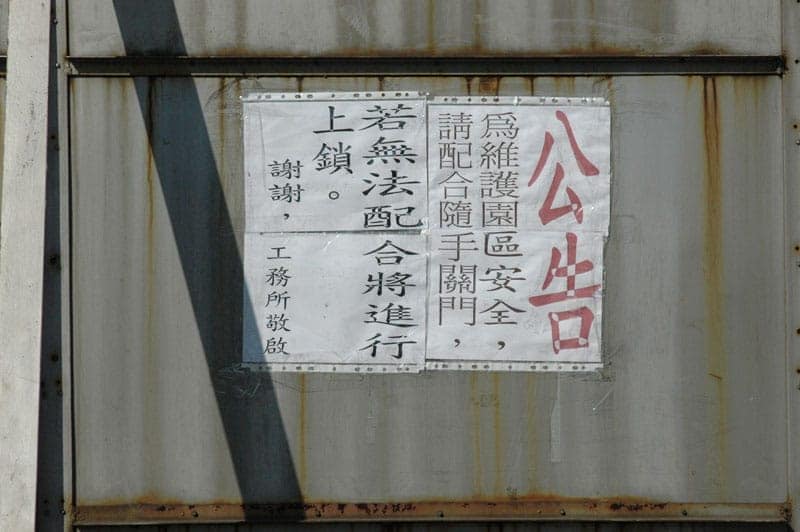 公告
為維護園區安全，
請配合隨手關門，
若無法配合將進行
上鎖。
謝謝，工務所敬啟